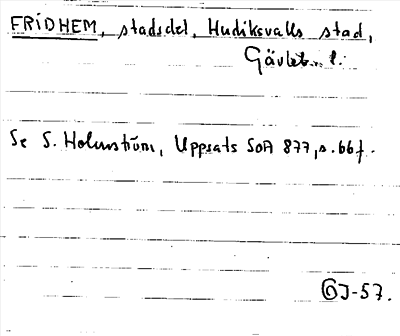 FRIDHEM, stadsdel, Hudiksvalls stad,
Gävleb. l.
Se S. Holmström, Uppsats SOA 877, s. 66 f.
GJ-57.